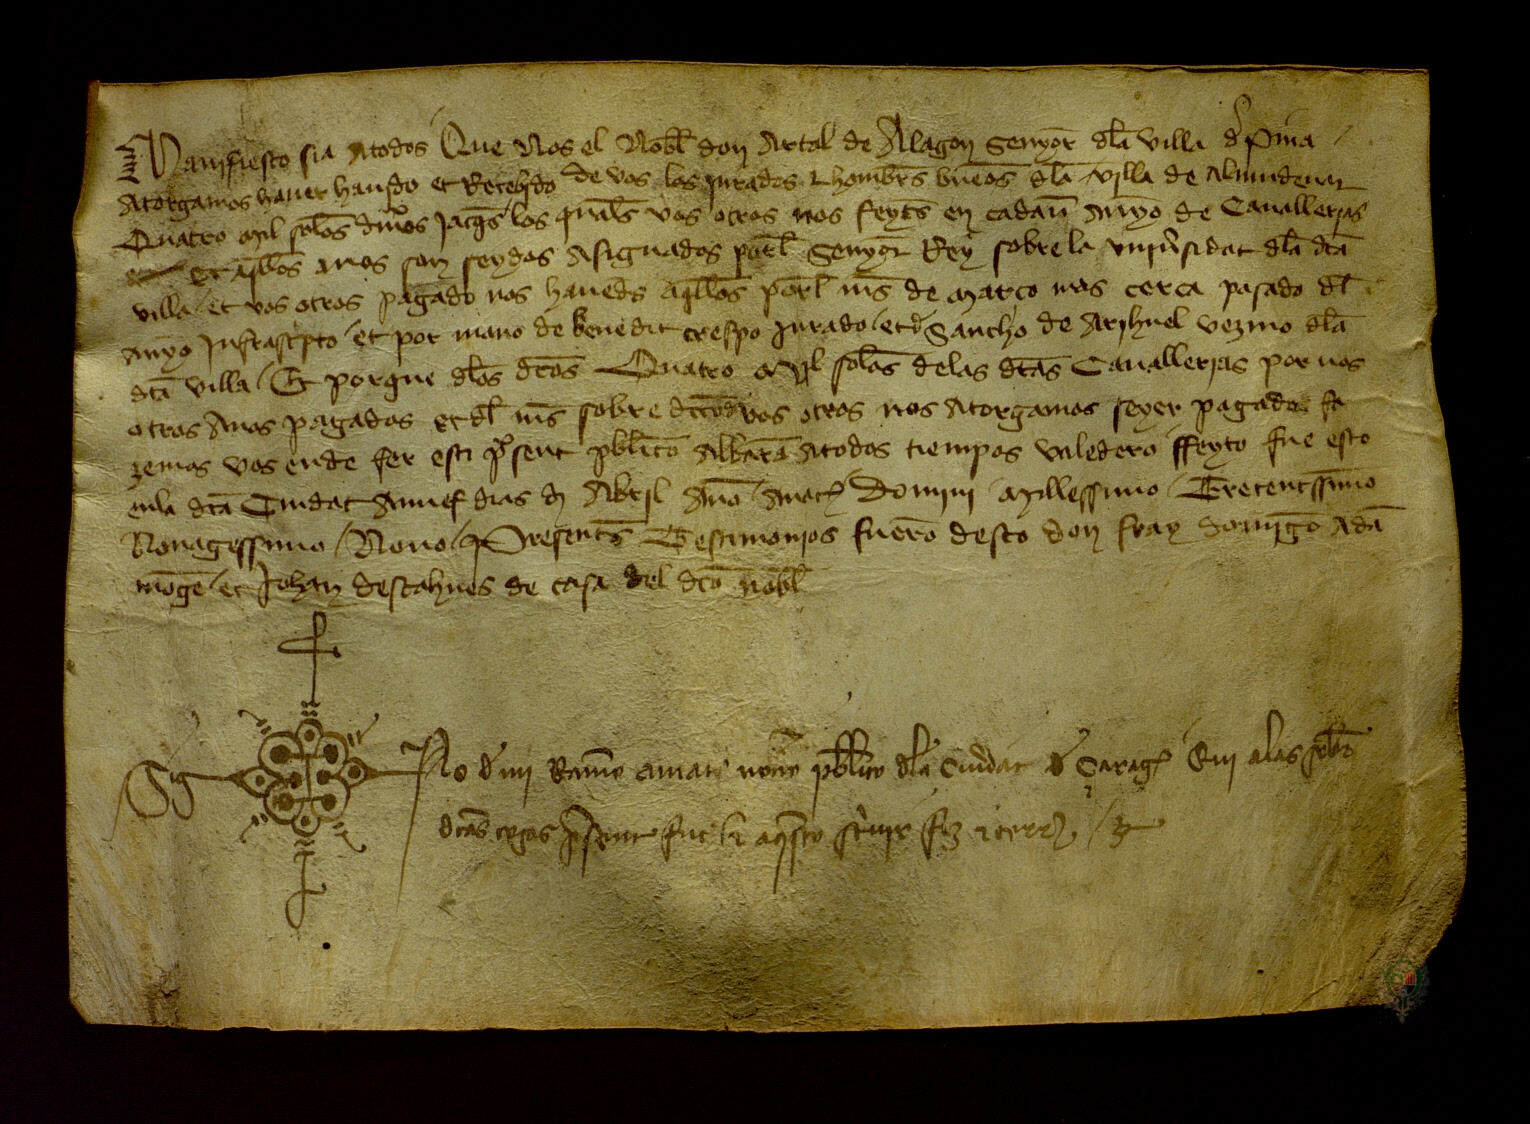 Manifiesto sia atodos Que Nos el Nobl don Artal de Alagon Senyor dla villa d Pina
Atorgamos hauer hauido et Recebido de vos los jurados et hombrs buenos dla villa de Almudeuar
Quatro mil solos dineros jacs los quals vos otros nos feyts en cadaun anyo de Cauallerias
et aqllos anos son seydos asignados porl Senyor Rey sobre la vniusidat dla dca
villa et vos otros pagado nos hauedes aqllos porl mes de março mas cerca pasado dl
anyo infrascripto et por mano de benedit crespo jurado et d Sancho de Arihuel vezino dla
dca villa Et porque dlos dcos Quatro Mil solos delas dcas Cauallerias por uos
otros Anos pagados et dl mes sobre dco d vos otros nos atorgamos seyer pagados fa
zemos vos ende fer esti psent publico Albara Atodos tiempos valedero ffeyto fue esto
enla dca Ciudat Anueu dias d Abril Ano Anat Domini Millessimo Trecentessimo
Nonagessimo Nono Presents Testimonios fuero desto don fray Domigo Ada
moge et Johan descahues de casa del dco nobl
Sig no d mi Ramo amat notario publico dla Ciudat d Çarag Qui alas sobre
dcas cosas present fue et aqsto scriuir fiz et cerre